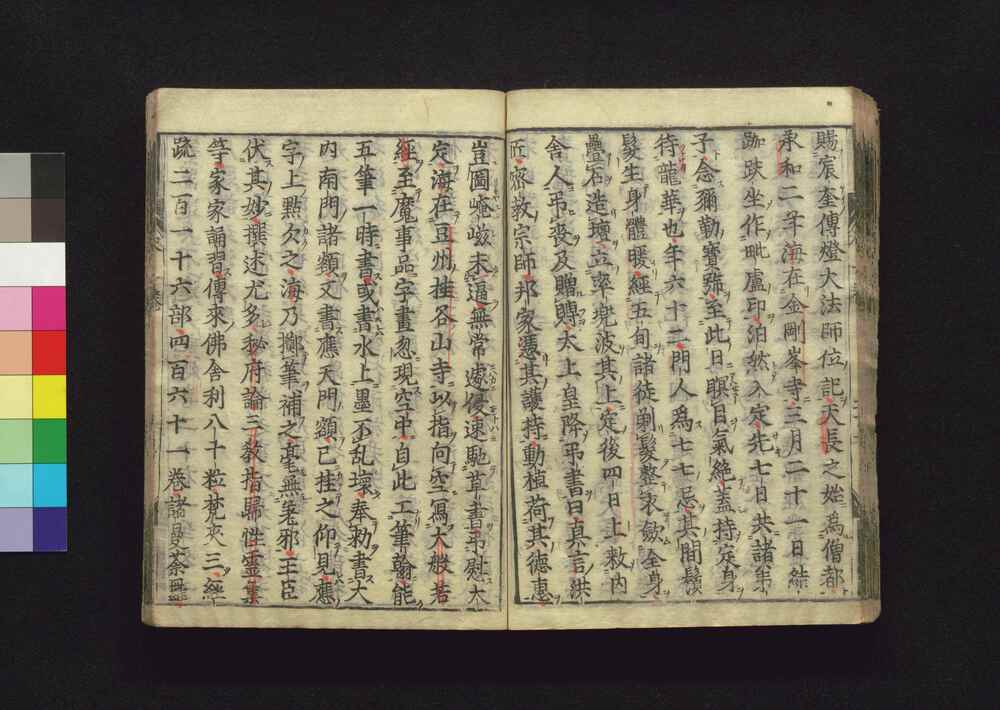 賜宸奎傳燈大法師位記天長之始為僧都
承和二年海在金剛峯寺三月二十一日結
跏趺坐作毗盧印泊然入定先七日共諸弟
子念彌勒寳號至此日瞑目氣絶蓋持定身
待龍華也年六十二門人爲七七忌其間鬚
髮生身體暖經五旬諸徒剃髮整衣斂全身
疊石造壇立率兜波其上定後四日上敕內
舍人弔喪及贈賻太上皇降弔書曰真言洪
匠密教宗師邦家憑其護持動植荷其德惠
豈圖崦嵫未逼無常遽侵速馳草書弔慰大
定海在豆州桂谷山寺以指向空寫大般若
經至魔事品字畫忽現空中自此工筆翰能
五筆一時書或書水上墨不乱壞奉勅書大
內南門諸額又書應天門額已挂之仰見應
字上點欠之海乃擲筆補之毫無差邪王臣
伏其妙撰述尤多秘府論三教指歸性靈集
等家家誦習傳來佛舍利八十粒梵夾三經
疏二百一十六部四百六十一卷諸曼荼羅